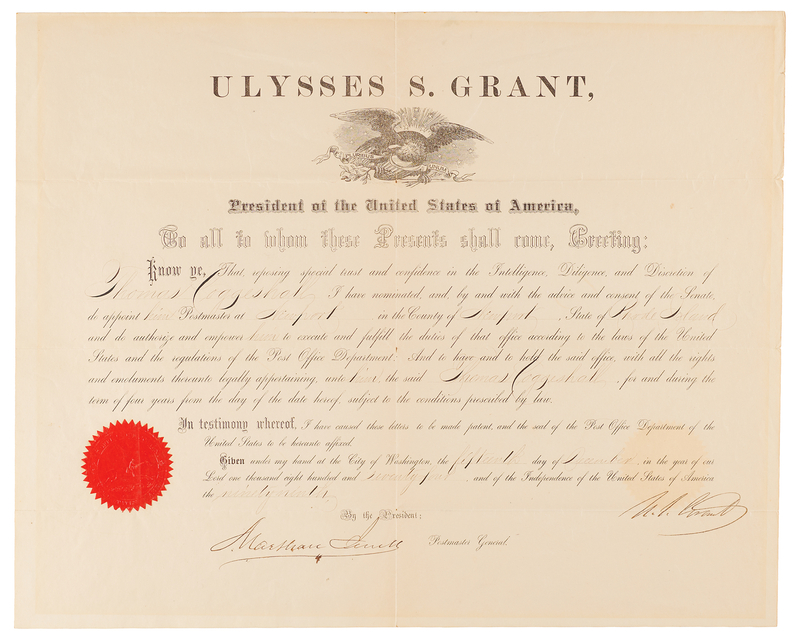 ULYSSES S. GRANT,
President of the United States of America,
To all to whom these Presents shall come, Greeting:
Know ye, That, reposing special trust and confidence in the Intelligence, Diligence, and Discretion of
Thomas Coggeshall, I have nominated, and, by and with the advice and consent of the Senate,
do appoint him Postmaster at Newport in the County of Newport, State of Rhode Island
and do authorize and empower him to execute and fulfill the duties of that office according to the laws of the United
States and the regulations of the Post Office Department: And to have and to hold the said office, with all the rights
and emoluments thereunto legally appertaining, unto him, the said Thomas Coggeshall, for and during the
term of four years from the day of the date hereof, subject to the conditions prescribed by law.
In testimony whereof, I have caused these letters to be made patent, and the seal of the Post Office Department of the
United States to be hereunto affixed.
Given under my hand at the City of Washington, the fifteenth day of December, in the year of our
Lord one thousand eight hundred and seventy four, and of the Independence of the United States of America
the ninety ninth.
By the President:
U. S. Grant
Marshall Jewell Postmaster General.